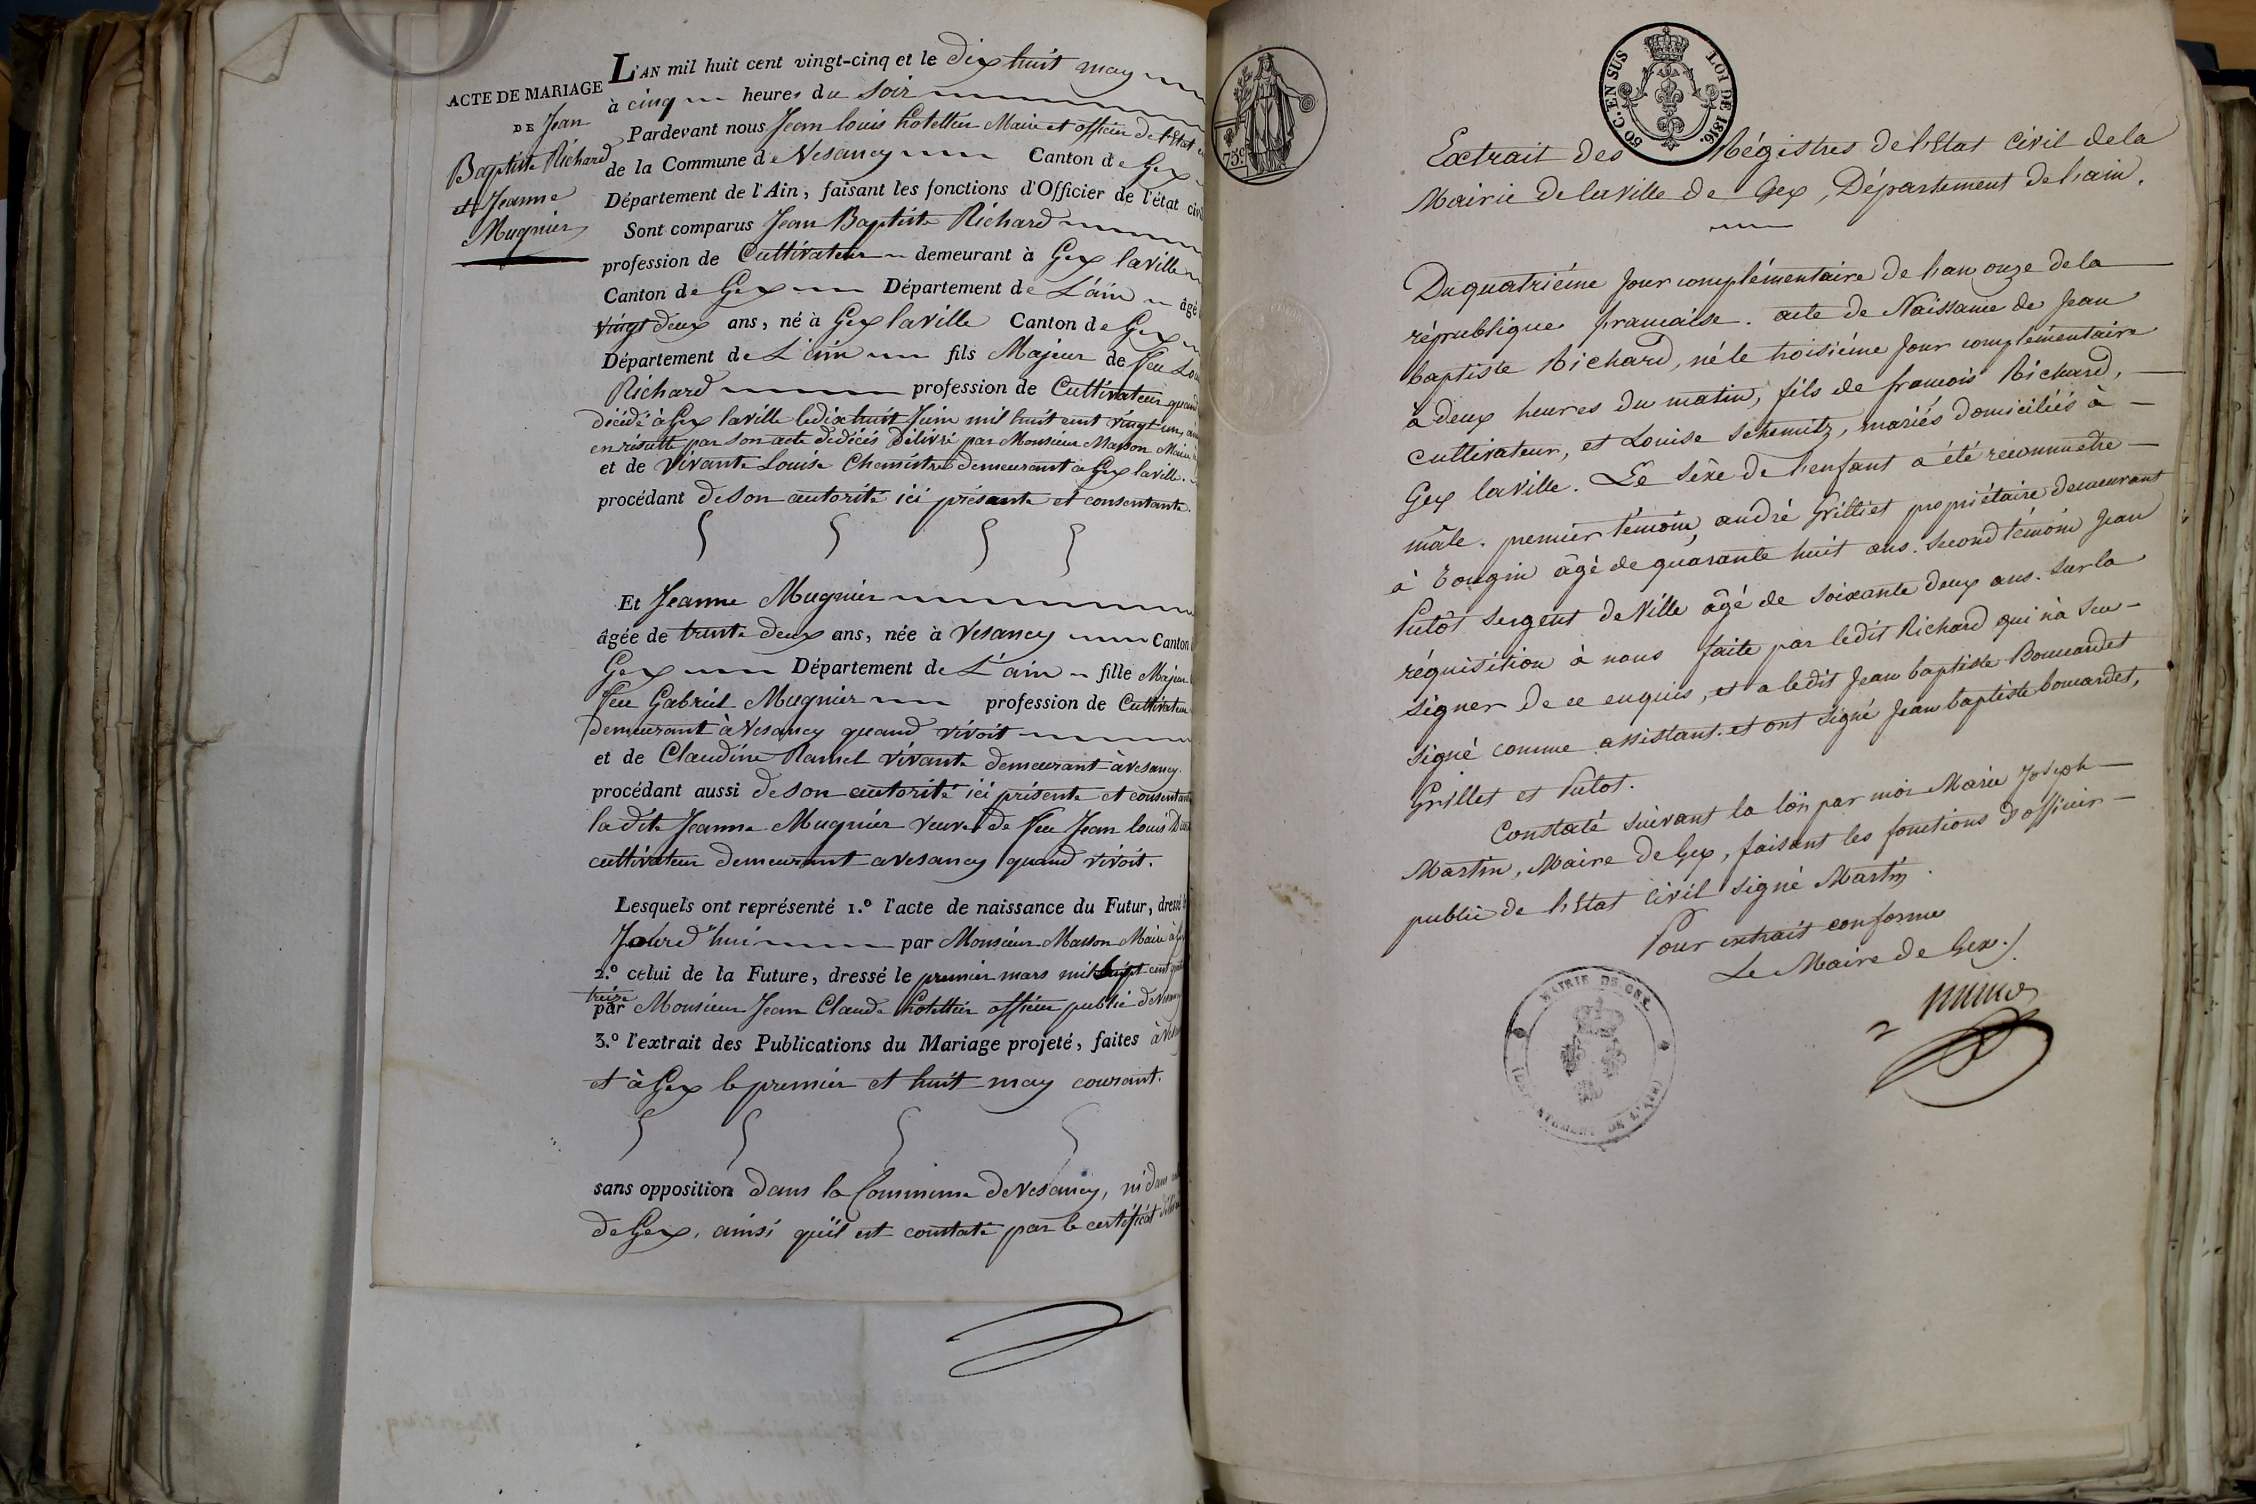 ACTE DE MARIAGE
DE Jean
Baptiste Richard
et Jeanne
Mugnier
L'AN mil huit cent vingt-cinq et le dix huit may
à cinq heures du soir
Pardevant nous Jean louis hotellier Maire et officier de l'Etat
de la Commune de Vesancy Canton de Gex
Département de l'Ain, faisant les fonctions d'Officier de l'état civil
Sont comparus Jean Baptiste Richard
profession de Cultivateur demeurant à Gex laville
Canton de Gex Département de L'ain âgé
vingt deux ans, né à Gex laville Canton de Gex
Département de L'ain fils Majeur de feu
Richard profession de Cultivateur quand
décédé à Gex laville le dix huit Juin mil huit cent vingt un,
en résulte par son acte de décès délivré par Monsieur Masson Maire
et de vivante Louise Chemistre demeurant a Gex laville.
procédant de son autorité ici présante et consentante.
Et Jeanne Mugnier
âgée de trente deux ans, née à Vesancy Canton
Gex Département de L'ain fille Majeure
feu Gabriel Mugnier profession de Cultivateur
demeurant à Vesancy quand vivoit
et de Claudine Ramel vivante demeurant à vesancy.
procédant aussi de son autorité ici présente et consentante
la dite Jeanne Mugnier veuve de feu Jean louis
cultivateur demeurant a vesancy quand vivoit.
Lesquels ont représenté 1.º l'acte de naissance du Futur, dressé
Jourd'hui par Monsieur Masson Maire
2.º celui de la Future, dressé le premier mars mil sept cent
treize
par Monsieur Jean Claude hotellier officier public de
3.º l'extrait des Publications du Mariage projeté, faites à
et à Gex le premier et huit may courant.
sans opposition dans la Commune de Vesancy, ni dans
de Gex, ainsi qu'il est constaté par le certificat
75 c
50 C. EN SUS
LOI DE 1816.
Extrait des Régistres de l'Etat Civil de la
Mairie de la Ville de Gex, Département de l'ain.
Du quatriéme Jour complémentaire de l'an onze de la
république francaise. acte de Naissance de Jean
baptiste Richard, né le troisiéme Jour complémentaire
à deux heures du matin, fils de francois Richard,
cultivateur, et Louise Schemitz, mariés domiciliés à
Gex laville. Le sexe de l'enfant a été reconnu être
mâle. premier témoin, andré Grilliet propriétaire demeurant
à Tougin âgé de quarante huit ans. second témoin Jean
Putot sergent de Ville âgé de soixante deux ans. sur la
réquisition à nous faite par ledit Richard qui n'a seu
signer de ce enquis, et a ledit Jean baptiste Boucardet
signé comme assistant. et ont signé Jean baptiste boucardet,
Grillet et Putot.
Constaté suivant la loi par moi Marie Joseph
Martin, Maire de Gex, faisant les fonctions d'officier
public de l'Etat Civil signé Martin.
Pour extrait conforme
Le Maire de Gex.
MAIRIE DE GEX
(DÉPARTEMENT DE L'AIN)